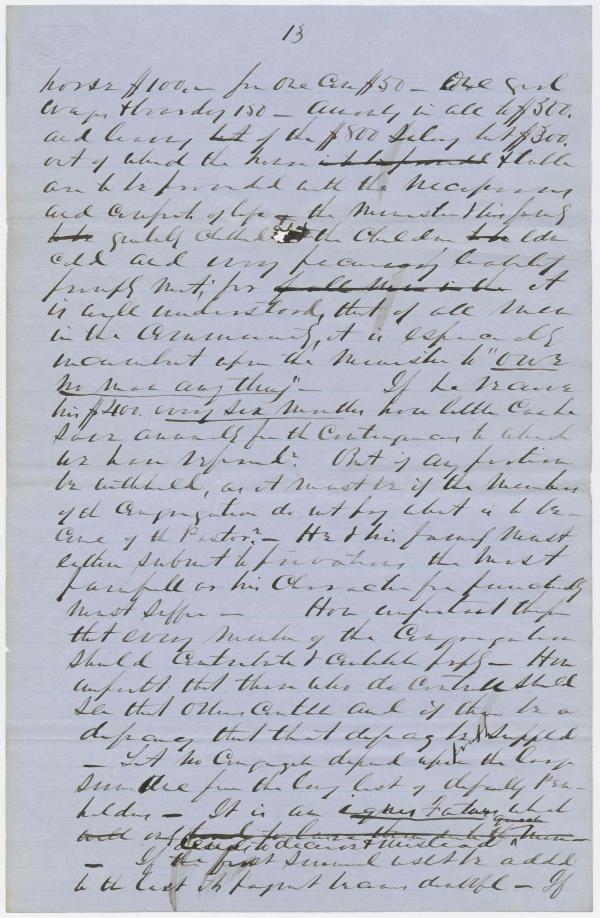 13
horse $100,— for one Cow $50 — One girl
wages & board 150 — Amounting in all to $500.
and leaving but of the $800 Salary but $300.
out of which the Man & cattle
are to be provided with the necessaries
and comforts of life — the Minister & his family
genteely clothed the Children
and every pecuniary liability
promptly met; for it
is well understood, that of all men
in the Community, it is especially
incumbent upon the Minister to "owe
no man any thing" — If he receive
his $400. every six months how little can he
save annually for the Contingencies to which
we have referred? But if any portion
be withheld, as it must be if the Members
of the Congregation do not pay what is to be-
come of the Pastor? — He & his family must
either submit to privations the most
painfull or his Character for punctuality
must suffer — How important then
that every Member of the Congregation
should Contribute & Contribute promptly — How
important that those who do contribute should
see that others contribute and if there be a
deficiency that that deficiency be promptly supplied
— Let no Congregation depend upon the large
sum due from the long list of defaulting Pew
holders — It is an ignus Fatuus which
will only
deceive & mislead
— If the first Summer must be added
to the last the payment becomes doubtful — If